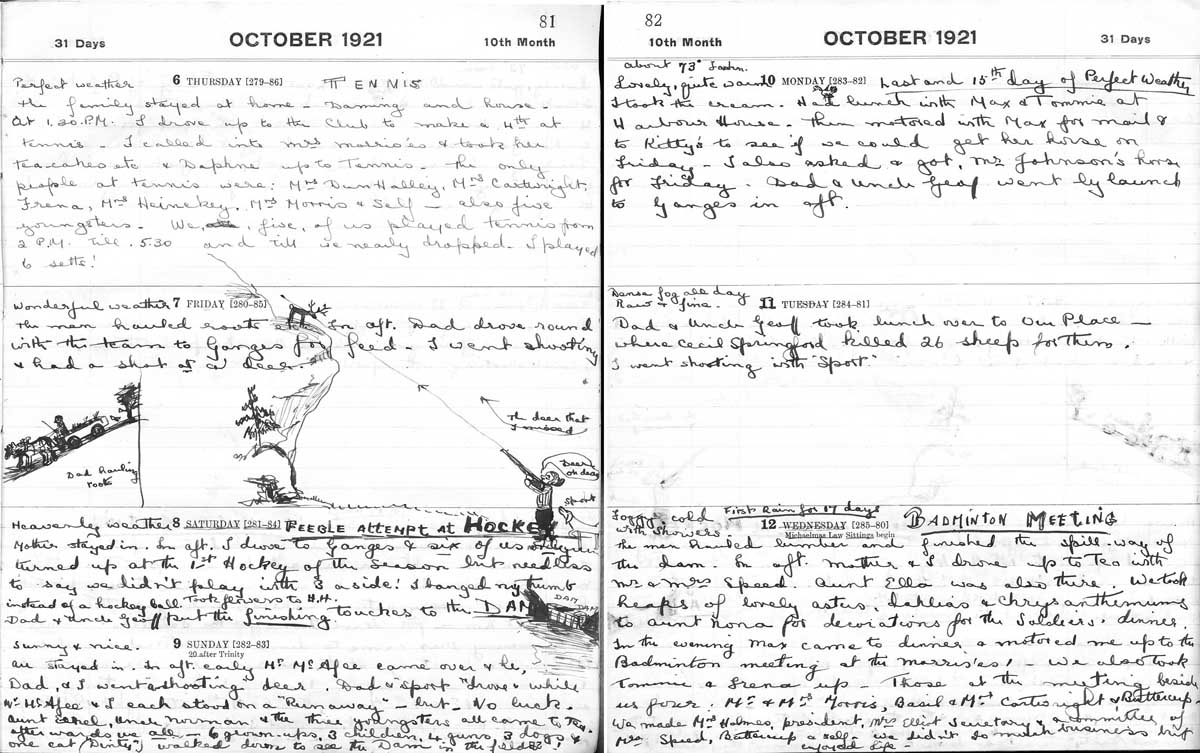 81
31 Days
OCTOBER 1921
10th Month
Perfect weather
6 THURSDAY [279-86]
TENNIS
The family stayed at home - Darning and house -
At 1.30 P.M. I drove up to the Club to make a 4th at
tennis - I called into Mrs Morris'es & took her
teacakes etc & Daphne up to Tennis. The only
people at tennis were: Mrs Dunhalley, Mrs Cartwright,
Irena, Mrs Heinekey, Mrs Morris & Self - also five
youngsters. We, five, of us played tennis from
2 P.M. till 5.30 and till we nearly dropped. I played
6 setts!
Wonderful weather
7 FRIDAY [280-85]
The men hauled roots In aft. Dad drove round
with the team to Ganges for feed. I went shooting
& had a shot at a deer.
The deer that
I missed
Dad hauling
roots
Deer
oh dear
Sport
Heavenly weather
8 SATURDAY [281-84]
FEEBLE ATTEMPT AT HOCKEY
Mother stayed in. In aft. I drove to Ganges & six of us only
turned up at the 1st Hockey of the Season but needless
to say we didn't play with 3 a side! I banged my thumb
instead of a hockey ball. Took flowers to H.H.
Dad & Uncle Geoff put the finishing touches to the DAM
DAM
DAM
Sunny & nice.
9 SUNDAY [282-83]
20 after Trinity
All stayed in. In aft. early Mr McAfee came over & he,
Dad, & I went shooting deer. Dad & "Sport" "drove" & while
Mr McAfee & I each stood on a "Runaway" - but - No luck.
Aunt, Uncle Norman & the three youngsters all came to Tea.
After wards we all - 6 grown-ups, 3 children, 4 guns, 3 dogs &
one cat (Dinty) walked down to see the Dam in the field
82
10th Month
OCTOBER 1921
31 Days
about 73° Fahn.
Lovely, quite warm
10 MONDAY [283-82]
Last and 15th day of Perfect Weather
I took the cream. Had lunch with Max & Tommie at
Harbour House. Then motored with Max for mail &
to Kitty's to see if we could get her horse on
Friday - I also asked & got, Mr Johnson's horse
for Friday. Dad & Uncle Geof went by launch
to Ganges in aft.
Dense fog all day
Raw & fine.
11 TUESDAY [284-81]
Dad & Uncle Geoff took lunch over to Our Place -
where Cecil Springford killed 26 sheep for them.
I went shooting with "Sport"
Foggy, cold
with showers
First Rain for 17 days
12 WEDNESDAY [285-80]
Michaelmas Law Sittings begin
BADMINTON MEETING
The men hauled lumber and finished the spill-way of
the dam. In aft. Mother & I drove up to Tea with
Mr & Mrs Speed. Aunt Ella was also there. We took
heaps of lovely asters, Dahlias & Chrysanthemums
to Aunt Nona for decorations for the Soldiers' dinner.
In the evening Max came to dinner & motored me up to the
Badminton meeting at the Morris'es! - We also took
Tommie & Irena up - Those at the meeting beside
us four: Mr & Mrs Morris, Basil & Mrs Cartwright & Buttercup
We made Mrs Holmes, president, Mrs Elliot Secretary & a committee of
Mrs Speed, Buttercup & self - we didn't do much business but
enjoyed life -